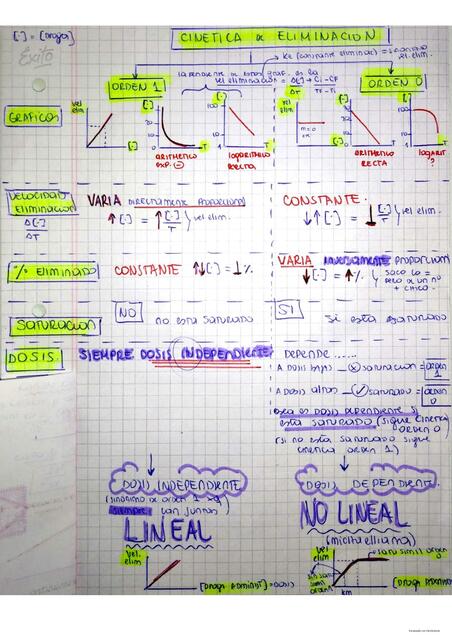 [·] = [Droga]
Éxito
CINÉTICA DE ELIMINACIÓN
Ke (constante eliminac) =
vel elim.
la pendiente de estos graf. es la
vel eliminación = Δ[·] = Ci - CF
ΔT TF - Ti
ORDEN 1
ORDEN 0
GRAFICOS
vel elim
[·]
[·]
30
20
10
0
T
ARITMETICO
EXP. (-)
[·]
100
10
1
T
LOGARITMICO
RECTA
vel elim
m=0
[·]
[·]
30
20
10
0
T
ARITMETICO
RECTA
[·]
100
10
1
T
LOGARIT
?
VELOCIDAD
ELIMINACION
Δ[·]
ΔT
VARIA DIRECTAMENTE PROPORCIONAL
↑[·] = ↑[·] } vel elim.
T
CONSTANTE.
↓↑[·] = ⊥[·] } vel elim.
T
% ELIMINADO
CONSTANTE ↑↓[·] = ⊥%
VARIA INVERSAMENTE PROPORCION
↓[·] = ↑%
saco lo =
pero a un nº
+ chico.
SATURACION
NO
no esta saturado
SI
si esta saturado
DOSIS.
SIEMPRE DOSIS INDEPENDIENTE
DEPENDE......
A DOSIS bajas — x saturacion = ORDEN 1
A DOSIS altas — ✓ saturado = ORDEN 0
osea es DOSIS DEPENDIENTE si
esta SATURADO (sigue cinetica
ORDEN 0)
(si no esta saturado sigue
cinetica orden 1)
DOSIS INDEPENDIENTE
(sinonimo de orden 1
siempre van juntos)
LINEAL
vel. elim
[Droga administ] = DOSIS
DOSIS DEPENDIENTE.
NO LINEAL
(michaelliana)
vel elim
satu simil orden 0
sin satu
simil orden 1
km